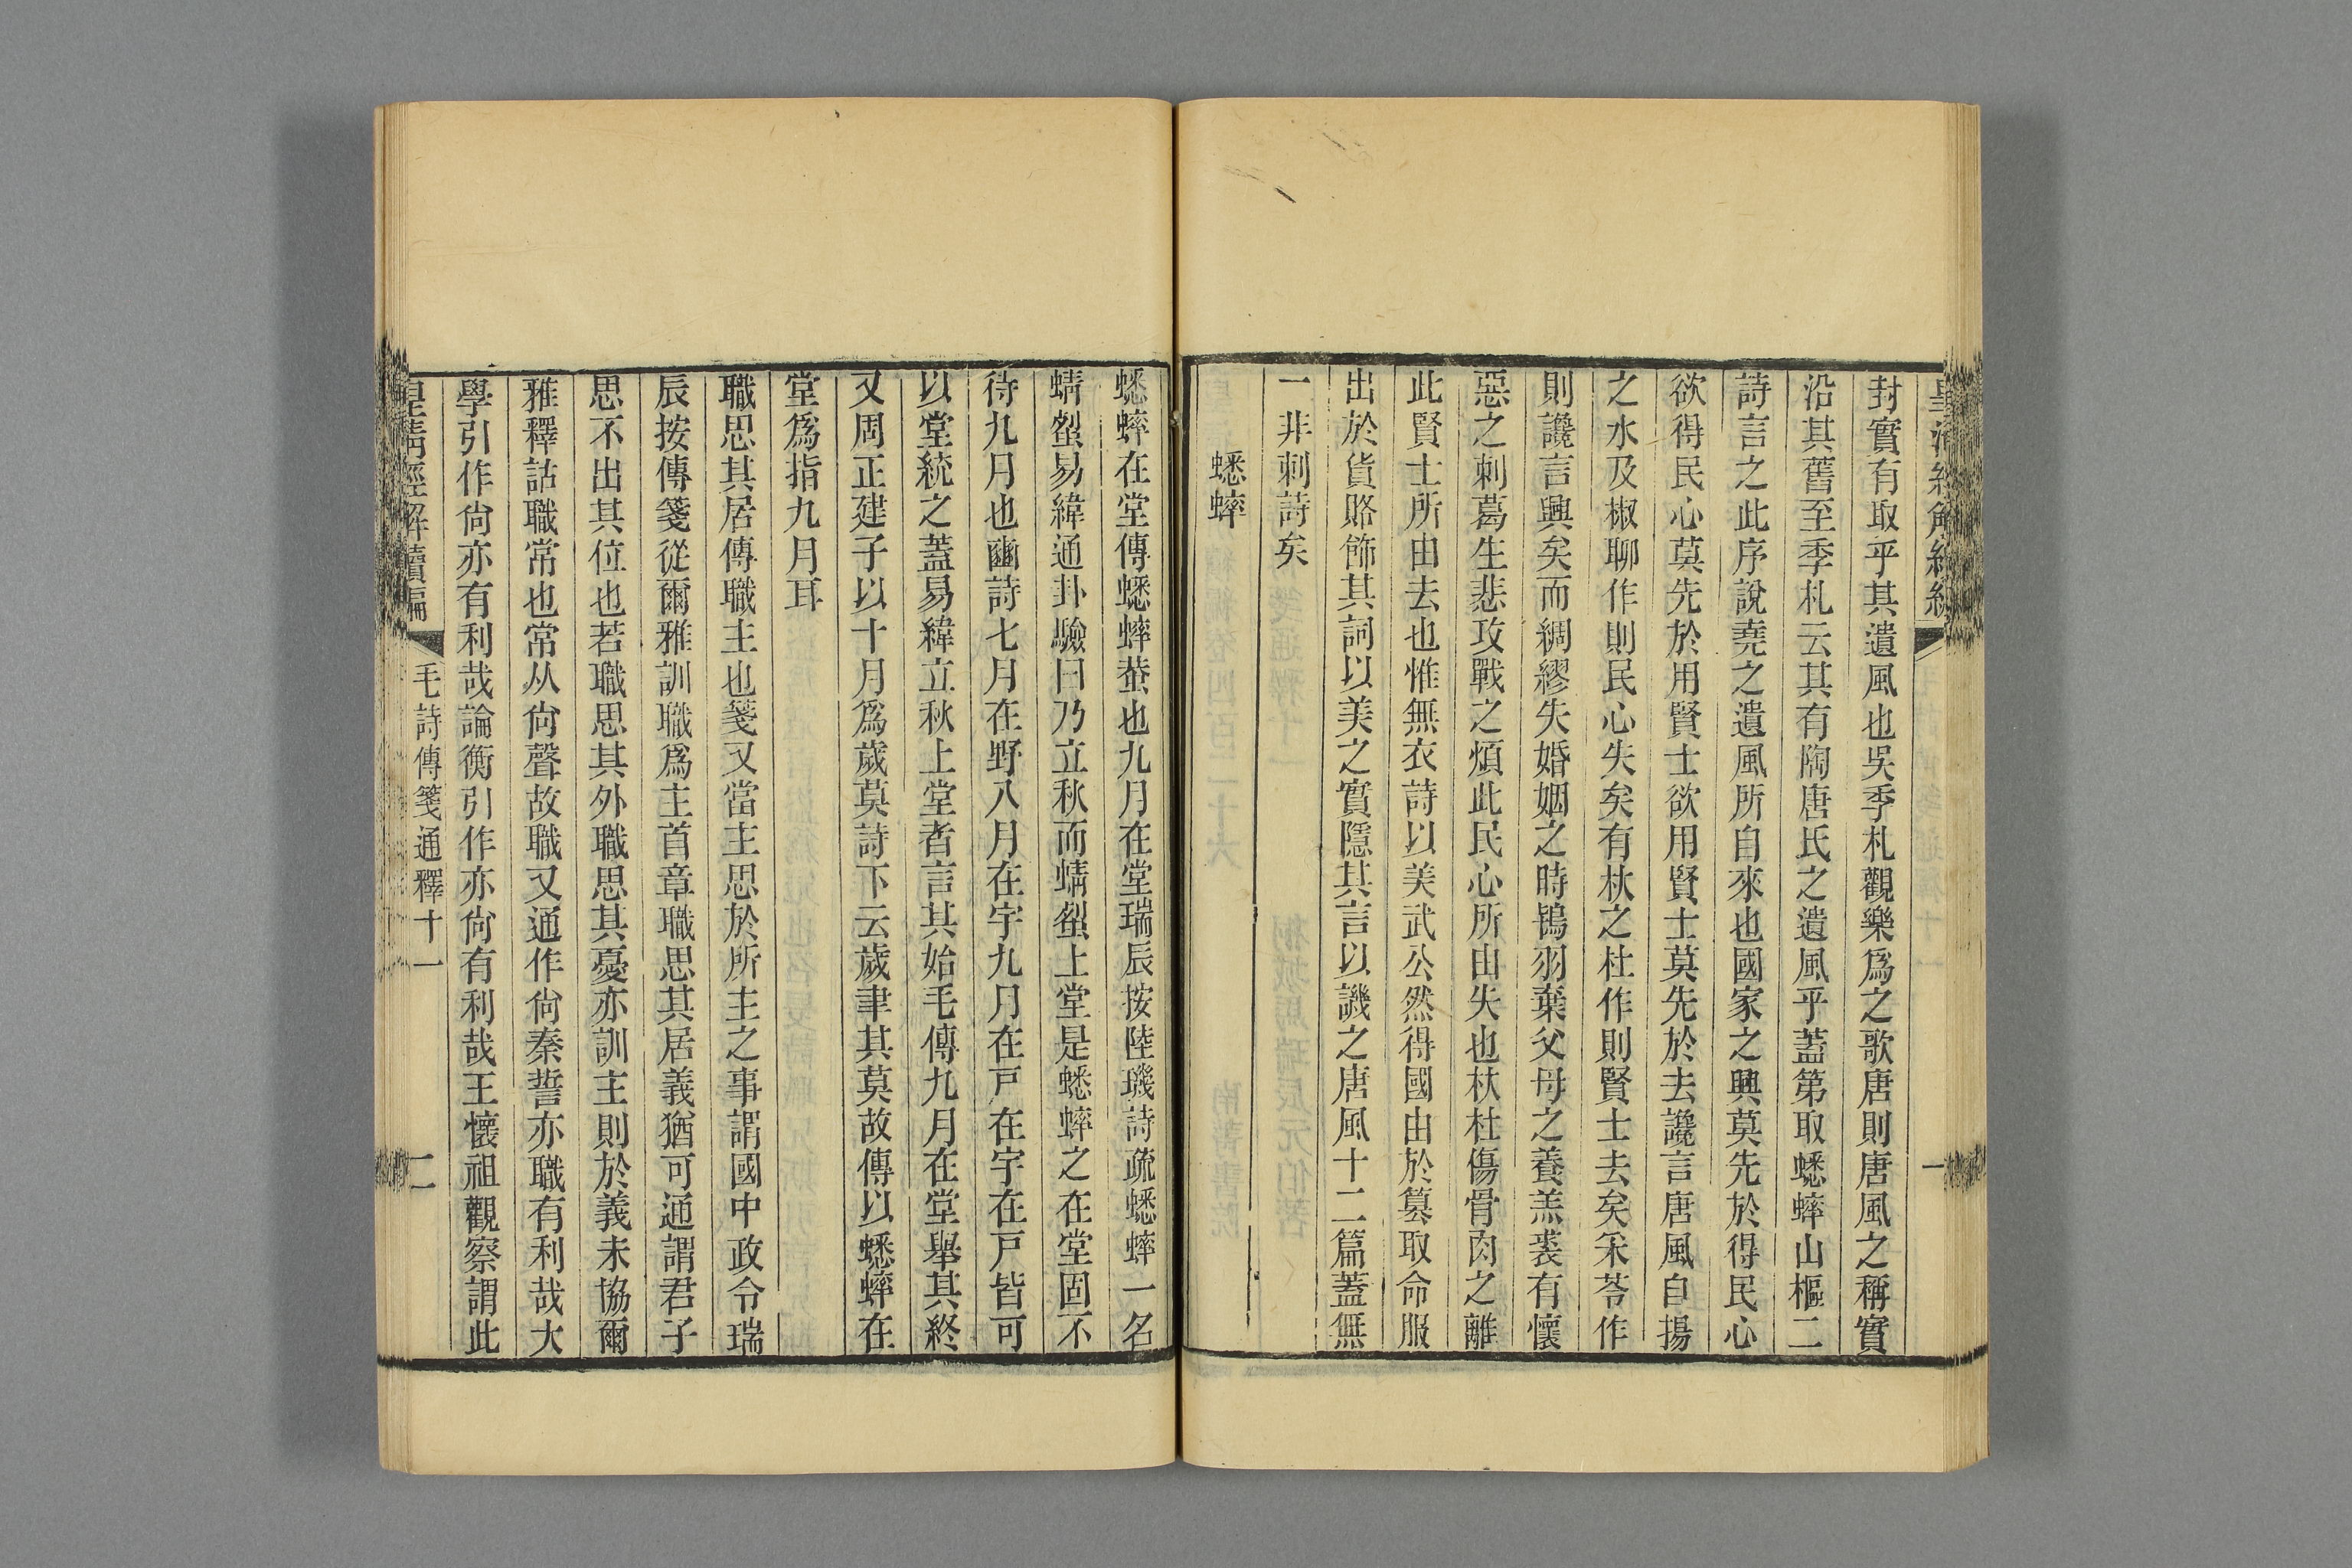 封實有取乎其遺風也吳季札觀樂爲之歌唐則唐風之稱實
沿其舊至季札云其有陶唐氏之遺風乎蓋第取蟋蟀山樞二
詩言之此序說堯之遺風所自來也國家之興莫先於得民心
欲得民心莫先於用賢士欲用賢士莫先於去讒言唐風自揚
之水及椒聊作則民心失矣有杕之杜作則賢士去矣采苓作
則讒言興矣而綢繆失婚姻之時鴇羽棄父母之養羔裘有懷
惡之刺葛生悲攻戰之煩此民心所由失也杕杜傷骨肉之離
此賢士所由去也惟無衣詩以美武公然得國由於篡取命服
出於貨賂飾其詞以美之實隱其言以譏之唐風十二篇蓋無
一非刺詩矣
蟋蟀
蟋蟀在堂傳蟋蟀蛬也九月在堂瑞辰按陸璣詩疏蟋蟀一名
蜻蛚易緯通卦驗曰乃立秋而蜻蛚上堂是蟋蟀之在堂固不
待九月也豳詩七月在野八月在宇九月在戸在宇在戸皆可
以堂統之蓋易緯立秋上堂者言其始毛傳九月在堂舉其終
又周正建子以十月爲歲莫詩下云歲聿其莫故傳以蟋蟀在
堂爲指九月耳
職思其居傳職主也箋又當主思於所主之事謂國中政令瑞
辰按傳箋從爾雅訓職爲主首章職思其居義猶可通謂君子
思不出其位也若職思其外職思其憂亦訓主則於義未協爾
雅釋詁職常也常从尙聲故職又通作尙秦誓亦職有利哉大
學引作尙亦有利哉論衡引作亦尙有利哉王懷祖觀察謂此
皇淸經解續編
毛詩傳箋通釋十一
二